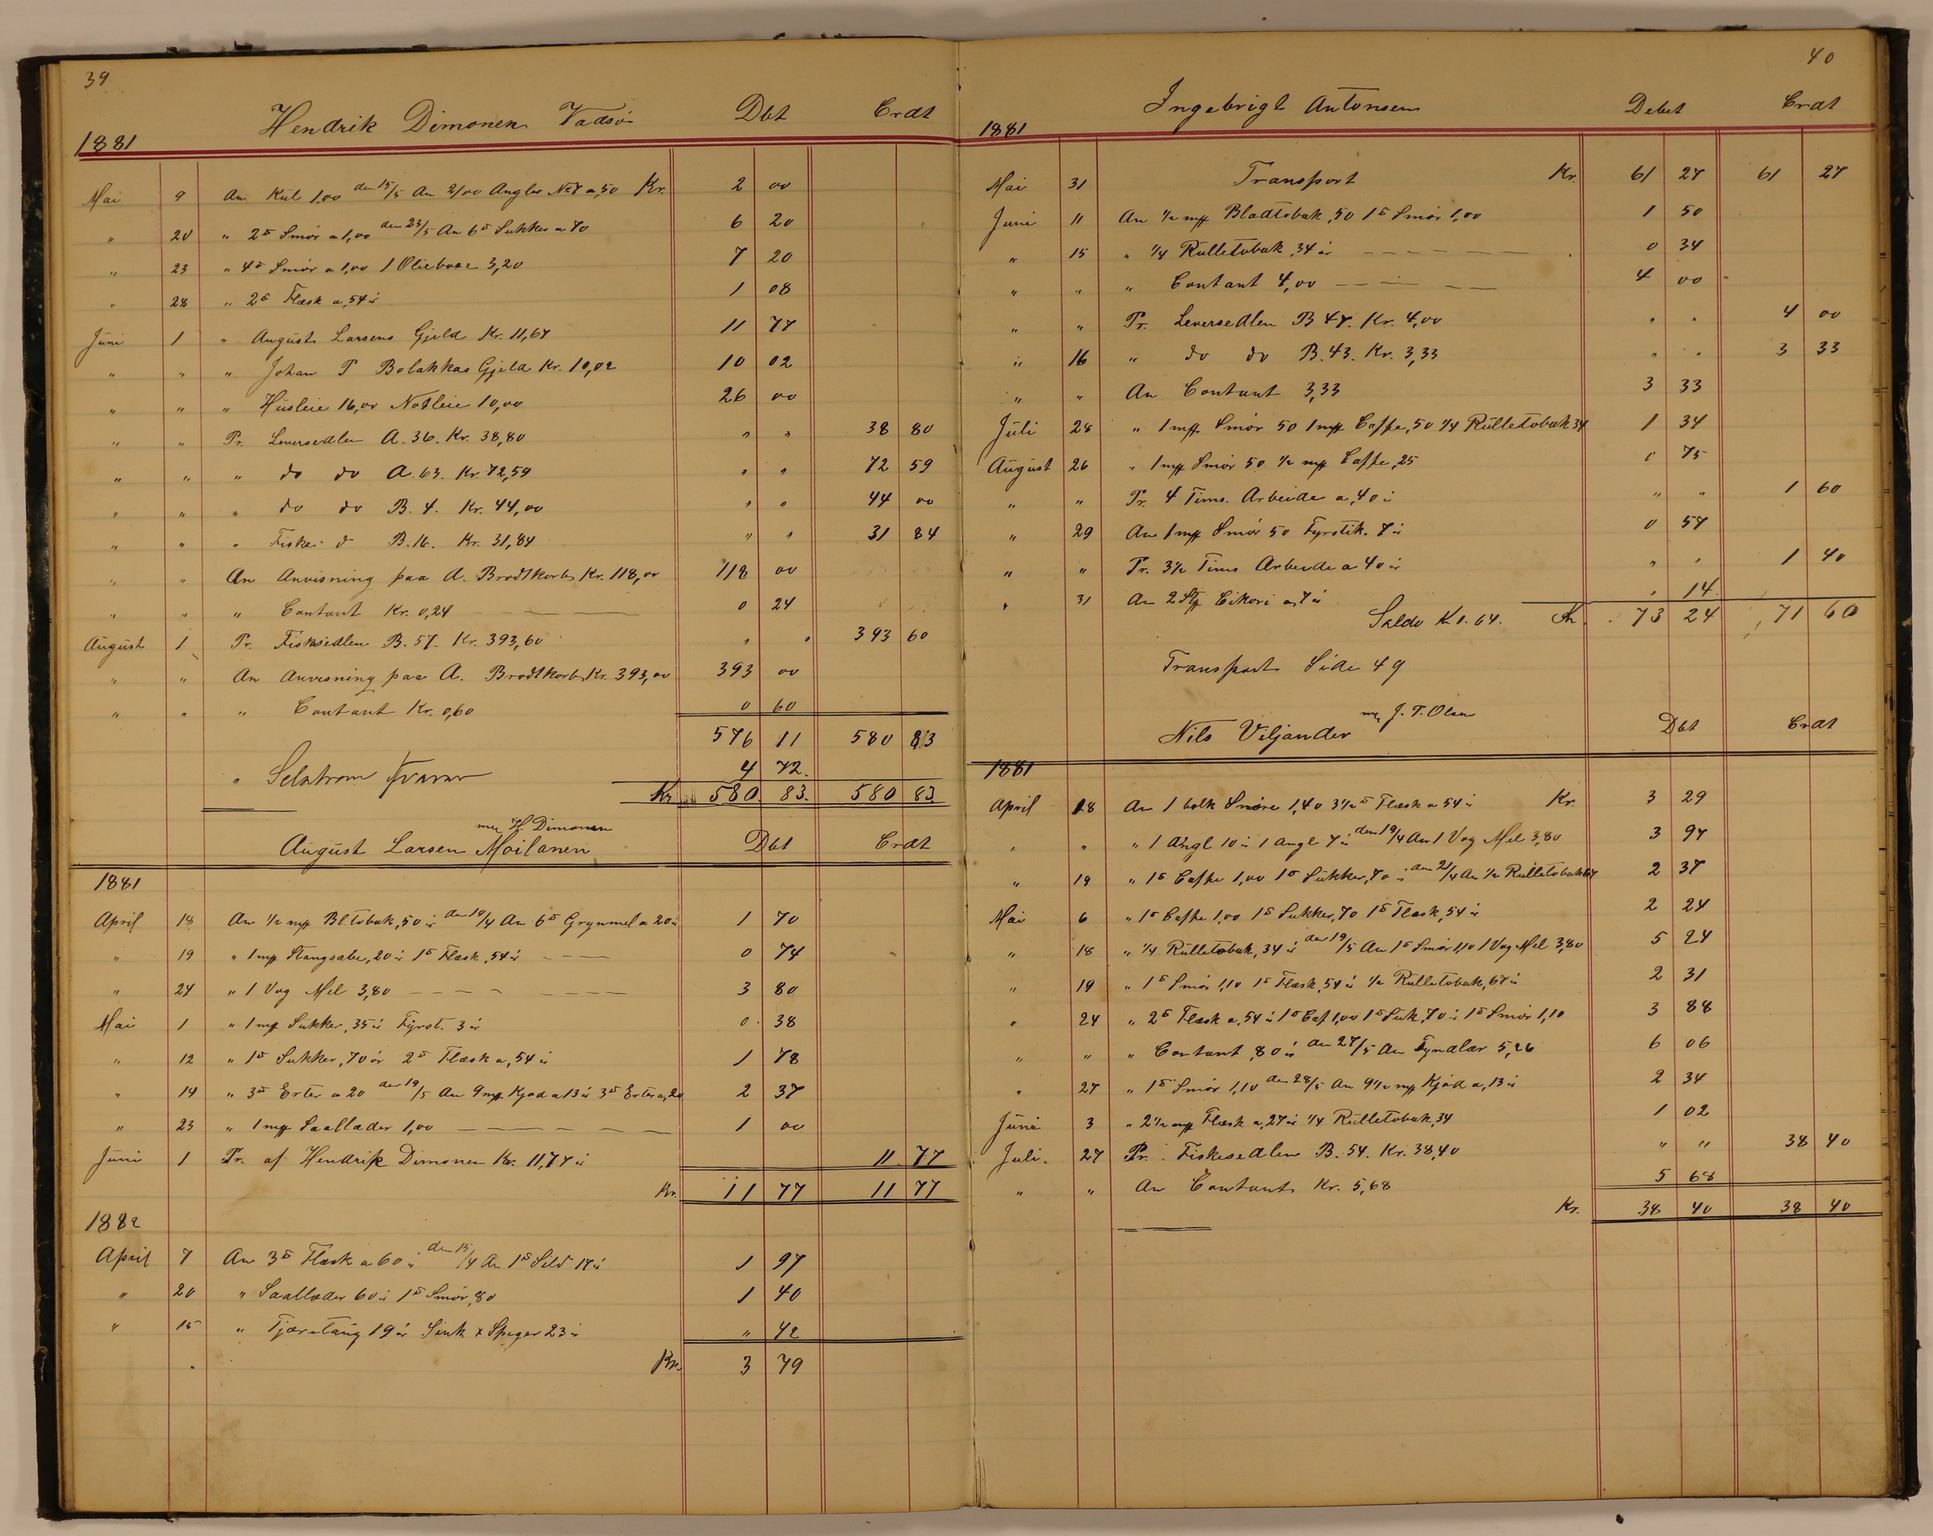 39
Hendrik Dimonen Vadsø Dbt Crdt
1881
Mai 9 An Kul 1,00 den 15/5 An 2/00 Angler No 7 a ,50 Kr. 2 00
" 20 " 2 ℔ Smør a 1,00 den 23/5 An 6 ℔ Sukker a 70 6 20
" 23 " 4 ℔ Smør a 1,00 1 Oliebuxe 3,20 7 20
" 28 " 2 ℔ Flæsk a ,54 ør 1 08
Juni 1 " August Larsens Gjeld Kr. 11,67 11 77
" " " Johan P Bolakkas Gjeld Kr. 10,02 10 02
" " " Husleie 16,00 Notleie 10,00 26 00
" " Pr. Leversedlen A. 36. Kr. 38,80 " " 38 80
" " " do do A. 63. Kr. 72,59 " " 72 59
" " " do do B. 4. Kr. 44,00 " " 44 00
" " " Fiske d B. 16. Kr. 31,84 " " 31 84
" " An Anvisning paa A. Brodtkorb Kr. 118,00 118 00
" " " Contant Kr. 0,24 0 24
August 1 Pr. Fiskesedlen B. 57. Kr. 393,60 " " 393 60
" " An Anvisning paa A. Brodtkorb Kr. 393,00 393 00
" " " Contant Kr. 0,60 0 60
576 11 580 83
" 4 72
Kr. 580 83 580 83
August Larsen Moilanen med H. Dimonen Dbt Crdt
1881
April 18 An ½ mk Bltobak ,50 ør den 19/4 An 6 ℔ Grynmel a 20 ør 1 70
" 19 " 1 mk Stangsæbe ,20 ør 1 ℔ Flæsk ,54 ør 0 74
" 24 " 1 Vog Mel 3,80 3 80
Mai 1 " 1 mk Sukker ,35 ør Fyrst. 3 ør 0 38
" 12 " 1 ℔ Sukker ,70 ør 2 ℔ Flæsk a ,54 ør 1 78
" 14 " 3 ℔ Erter a 20 den 19/5 An 9 mk Kjød a 13 ør 3 ℔ Erter a ,20 2 37
" 23 " 1 mk Saallæder 1,00 1 00
Juni 1 Pr. af Hendrik Dimonen Kr. 11,77 ør 11 77
Kr. 11 77 11 77
1882
April 7 An 3 ℔ Flæsk a 60 ør den 15/4 An 1 ℔ Sild 17 ør 1 97
" 20 " Saallæder 60 ør 1 ℔ Smør ,80 1 40
" 15 " Tjæretaug 19 ør Sink & Spiger 23 ør " 42
Kr. 3 79
40
Ingebrigt Antonsen Debet Crdt
1881
Mai 31 Transport Kr. 61 27 61 27
Juni 11 An ½ mk Bladtobak ,50 1 ℔ Smør 1,00 1 50
" 15 " ¼ Rulletobak ,34 ør 0 34
" " " Contant 4,00 4 00
" " Pr. Leversedlen B 47. Kr. 4,00 " " 4 00
" 16 " do do B. 43. Kr. 3,33 " " 3 33
" " An Contant 3,33 3 33
Juli 28 " 1 mk Smør 50 1 mk Caffe ,50 ¼ Rulletobak 34 1 34
August 26 " 1 mk Smør 50 ½ mk Caffe ,25 0 75
" " Pr. 4 Tims. Arbeide a ,40 ør " " 1 60
" 29 An 1 mk Smør 50 Fyrstik. 7 ør 0 57
" " Pr. 3½ Tims Arbeide a 40 ør " " 1 40
" 31 An 2 Stk Cikori a 7 ør " 14
Saldo Kr 1.64. Kr. 73 24 71 60
Transport Side 49
Nils Viljander med J. T. Olsen Dbt Crdt
1881
April 18 An 1 bolk Smøre 1,40 3½ ℔ Flæsk a 54 ør Kr. 3 29
" " " 1 Angl 10 ør 1 Angl 7 ør den 19/4 An 1 Vog Mel 3,80 3 97
" 19 " 1 ℔ Caffe 1,00 1 ℔ Sukker ,70 ør den 21/4 An ½ Rulletobak 67 2 37
Mai 6 " 1 ℔ Caffe 1,00 1 ℔ Sukker ,70 1 ℔ Flæsk ,54 ør 2 24
" 18 " ¼ Rulletobak ,34 ør den 19/5 An 1 ℔ Smør 1,10 1 Vog Mel 3,80 5 24
" 19 " 1 ℔ Smør 1,10 1 ℔ Flæsk ,54 ør ½ Rulletobak ,67 ør 2 31
" 24 " 2 ℔ Flæsk a ,54 ør 1 ℔ Caf 1,00 1 ℔ Suk ,70 ør 1 ℔ Smør 1,10 3 88
" " " Contant 80 ør den 27/5 An 5,26 6 06
" 27 " 1 ℔ Smør 1,10 den 28/5 An 9½ mk Kjød a ,13 ør 2 34
Juni 3 " 2½ mk Flæsk a ,27 ør ¼ Rulletobak ,34 1 02
Juli 27 Pr. Fiskesedlen B. 54. Kr. 38,40 " " 38 40
" " An Contant Kr. 5,68 5 68
Kr. 38 40 38 40